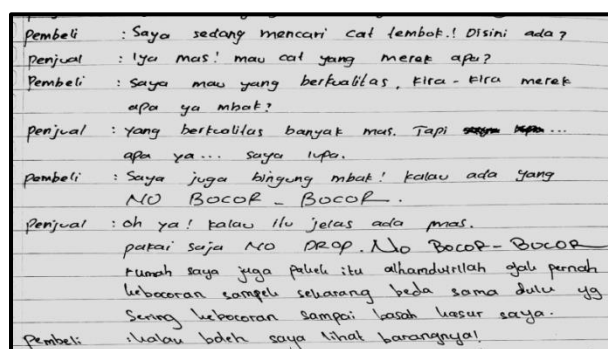 Pembeli : Saya sedang mencari cat tembok.! Disini ada?
Penjual : Iya mas! mau cat yang merek apa?
Pembeli : Saya mau yang berkualitas, kira-kira merek
apa ya mbak?
Penjual : yang berkualitas banyak mas. Tapi ...
apa ya... saya lupa.
Pembeli : Saya juga bingung mbak! kalau ada yang
NO BOCOR-BOCOR.
Penjual : oh ya! kalau itu jelas ada mas.
pakai saja NO DROP. NO BOCOR-BOCOR
rumah saya juga pakek itu alhamdurllah gak pernah
kebocoran sampek sekarang beda sama dulu yg
sering kebocoran sampai basah kasur saya.
Pembeli : kalau boleh saya lihat barangnya!